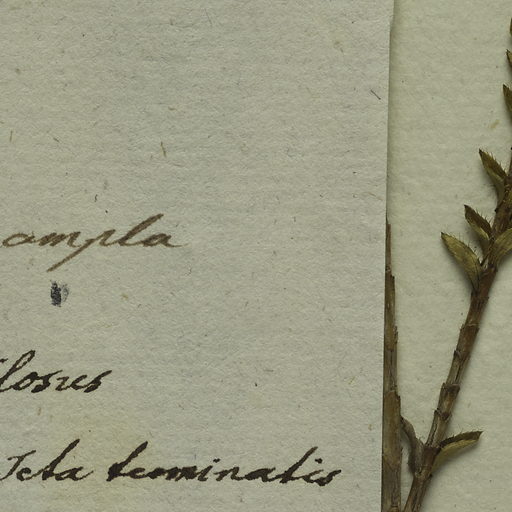 ampla
losus
Seta terminatis